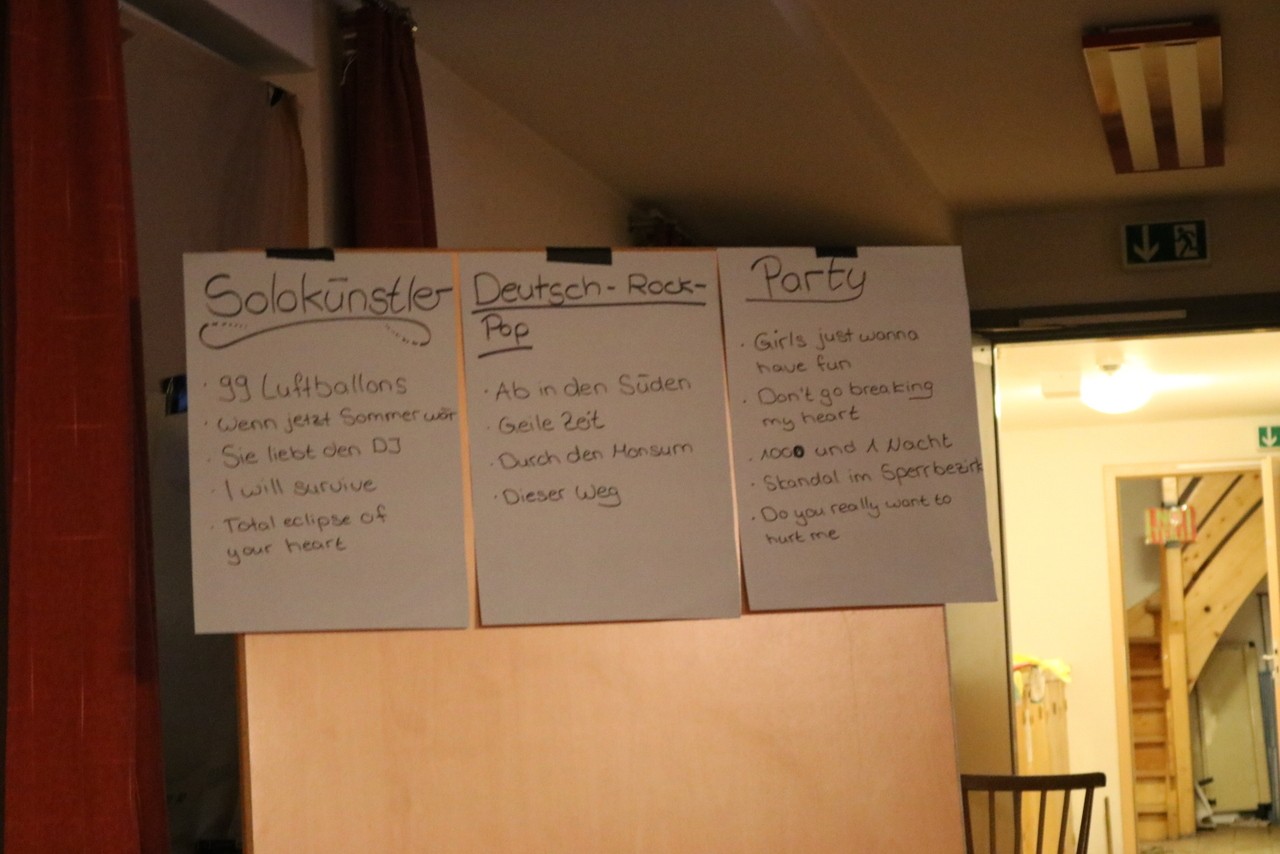 Solokünstler
· 99 Luftballons
· Wenn jetzt Sommer wär
· Sie liebt den DJ
· I will survive
· Total eclipse of
your heart
Deutsch-Rock-
Pop
· Ab in den Süden
· Geile Zeit
· Durch den Monsum
· Dieser Weg
Party
· Girls just wanna
have fun
· Don't go breaking
my heart
· 1000 und 1 Nacht
· Skandal im Sperrbezirk
· Do you really want to
hurt me